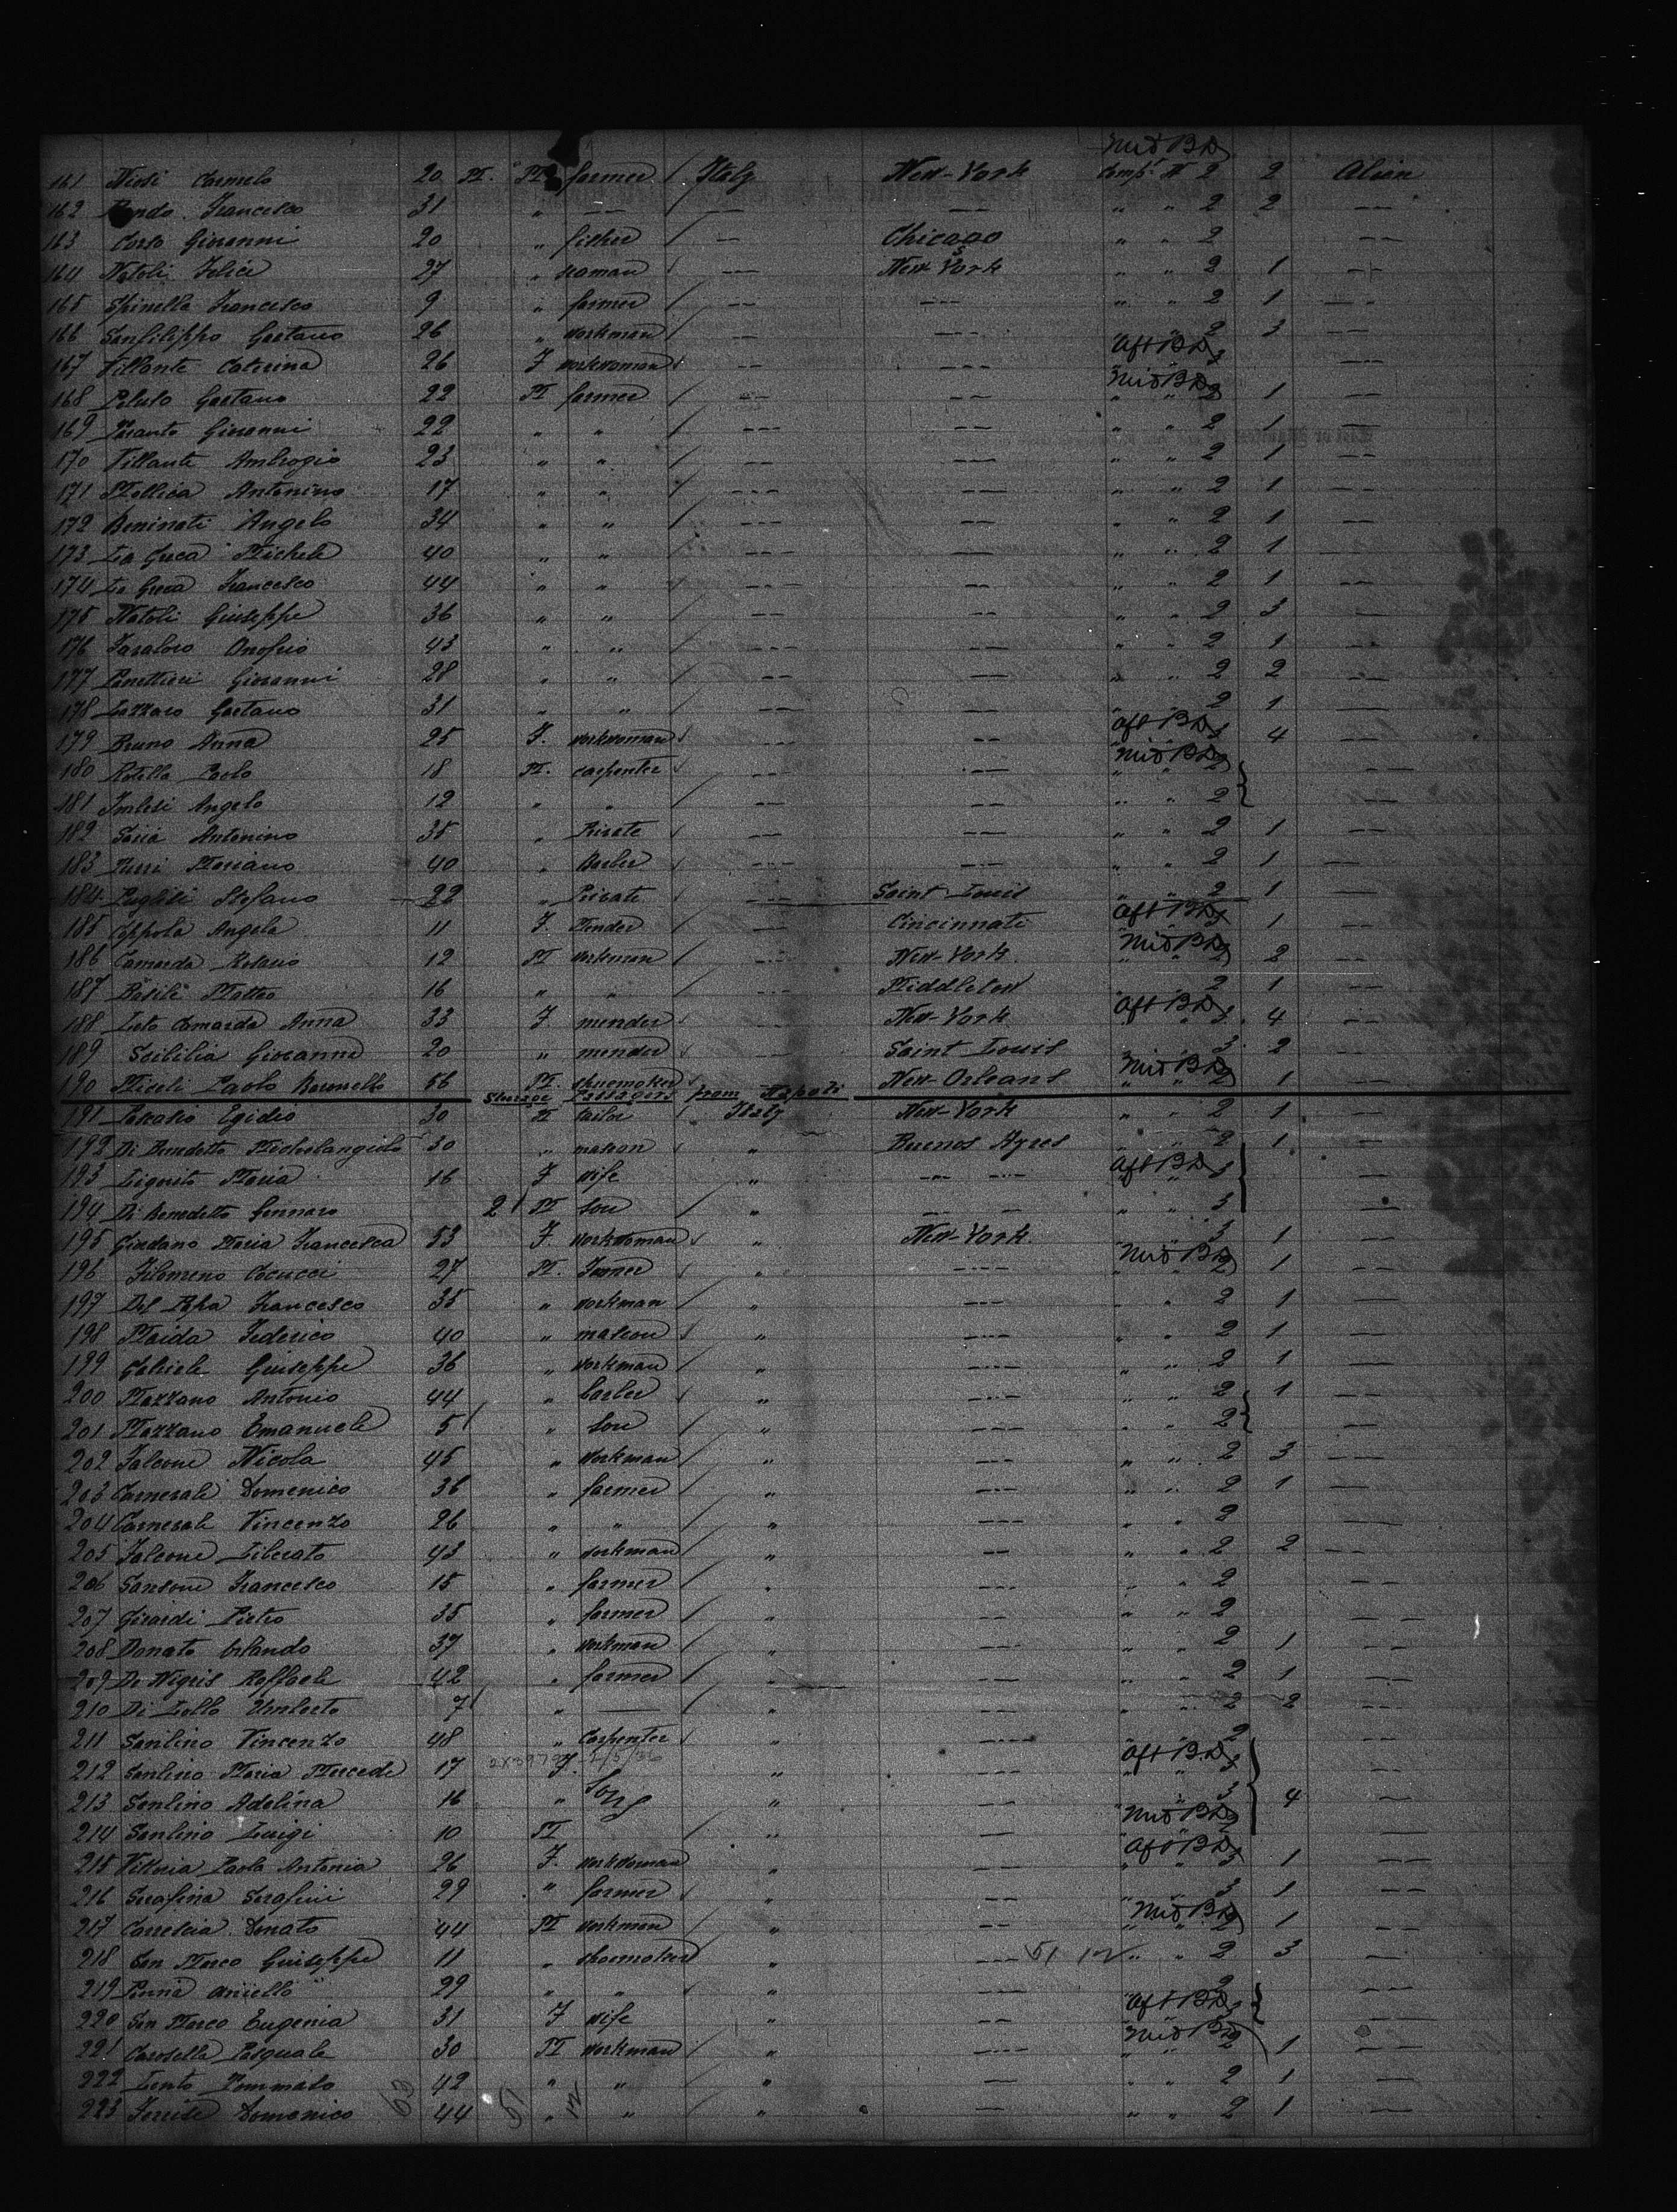 Mid B D
161 Niosi Carmelo 20 M. M farmer / Italy New-York Comp.t N 2 2 Alien
162 Francesco 31 " — — — " " 2 2 —
163 Corso Giovanni 20 " fisher / — Chicago " " 2 —
164 Natoli Felice 27 " seaman / — New York " " 2 1 —
165 Spinella Francesco 9 " farmer / — — " " 2 1 —
166 Sanfilippo Gaetano 26 " workman / — — " 2 3 —
167 Villante Caterina 26 F workwoman / — — Aft B D 3 —
168 Gaetano 22 M farmer / — — Mid B D " " 2 1 —
169 Giovanni 22 " " / — — " " 2 1 —
170 Villante Ambrogio 23 " " / — — " " 2 1 —
171 Mollica Antonino 17 " " / — — " " 2 1 —
172 Beninati Angelo 34 " " / — — " " 2 1 —
173 La Greca Michele 40 " " / — — " " 2 1 —
174 La Greca Francesco 44 " " / — — " " 2 1 —
175 Natoli Giuseppe 36 " " / — — " " 2 3 —
176 Onofrio 43 " " / — — " " 2 1 —
177 Panettieri Giovanni 28 " " / — — " " 2 2 —
178 Lazzaro Gaetano 31 " " / — — " 2 1 —
179 Bruno Anna 25 F. workwoman / — — Aft B D 3 4 —
180 Rotella Paolo 18 M. carpenter / — — Mid B D " " 2 —
181 Angelo 12 " " / — — " " 2 —
182 Antonino 35 " Private / — — " " 2 1 —
183 Mariano 40 " Barber / — — " " 2 1 —
184 Puglisi Stefano 22 " Private / — Saint Louis " " 2 1 —
185 Coppola Angela 11 F. Mender / — Cincinnati Aft B D 3 1 —
186 Camarda Rosario 12 M workman / — New-York Mid B D " " 2 2 —
187 Basile Matteo 16 " " / — Middletow " 2 1 —
188 Leto Camarda Anna 33 F mender / — New-York Aft B D " 3 4 —
189 Scibilia Giovanna 20 " mender / — Saint Louis " 3 2 —
190 Miceli Paolo 56 M. shuemaker / New-Orleans Mid B D " " 2 1 —
Steerage Passagers from Napoli
191 Egidio 30 M tailor / Italy New-York " " 2 1 —
192 Di Benedetto Michelangiolo 30 " mason " Buenos Ayres " " 2 1 —
193 Liguito Maria 16 F wife " — — Aft B D " " 3 —
194 Di Benedetto Gennaro 2 / M Son / " — — " " 3 —
195 Giordano Maria Francesca 53 F. workwoman / " New-York " 3 1 —
196 Filomeno Cocucci 27 M. / " — Mid B D " " 2 1 —
197 Del Papa Francesco 35 " workman / " — " " 2 1 —
198 Maida Federico 40 " mason / " — " " 2 1 —
199 Gabriele Giuseppe 36 " workman / " — " " 2 1 —
200 Mazzano Antonio 44 " barber / " — " " 2 1 —
201 Mazzano Emanuele 5 / " Son / " — " " 2 —
202 Falcone Nicola 45 " workman / " — " " 2 3 —
203 Carnevale Domenico 36 " farmer / " — " " 2 1 —
204 Carnevale Vincenzo 26 " " / " — " " 2 —
205 Falcone Liberato 43 " workman / " — " " 2 2 —
206 Sansone Francesco 15 " farmer / " — " " 2 —
207 Girardi Pietro 35 " farmer / " — " " 2 —
208 Donato Orlando 37 " workman / " — " " 2 1 —
209 De Nigris Raffaele 42 " farmer / " — " " 2 1 —
210 Di Lello Umberto 7 / " — / " — " " 2 2 —
211 Santino Vincenzo 48 " Carpenter / " — " " 2 —
212 Santino Maria Mercede 17 F. " — Aft B. D " " 3 —
213 Santino Adelina 16 " Son " — " 3 4 —
214 Santino Luigi 10 M / " — Mid B D " 2 —
215 Vittoria Paola Antonia 26 F. workwoman " — Aft B D " " 3 1 —
216 Serafina Serafini 29 " farmer / " — " " 3 1 —
217 Donato 44 M workman / " — Mid B D " " 2 1 —
218 San Marco Giuseppe 11 " shoemaker " — 51 12 " " 2 3 —
219 Penna Aniello 29 " " / " — 2 —
220 San Marco Eugenia 31 F wife " — Aft B D 3 —
221 Carosella Pasquale 30 M workman / " — Mid B D " " 2 1 —
222 Lento Tommaso 42 " " " — " " 2 1 —
223 Domenico 44 " " / " — " " 2 1 —